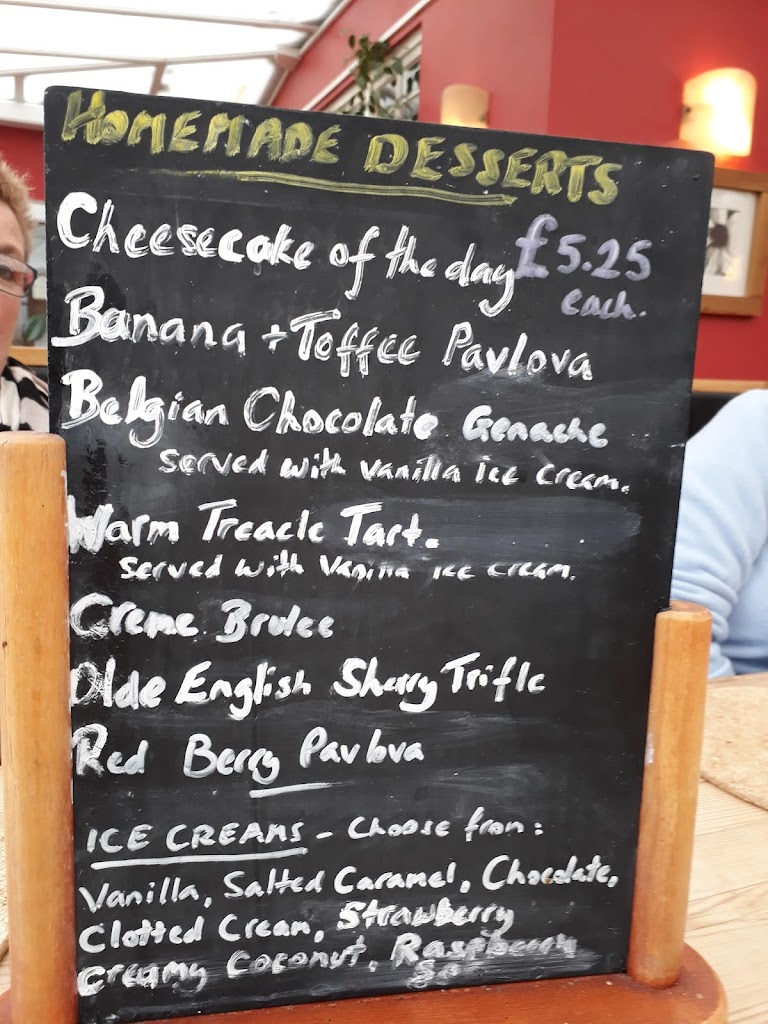 HOMEMADE DESSERTS
Cheesecake of the day £5.25
each.
Banana + Toffee Pavlova
Belgian Chocolate Genache
Served with vanilla ice cream.
Warm Treacle Tart.
Served with Vanilla ice cream.
Creme Brulee
Olde English Sherry Trifle
Red Berry Pavlova
ICE CREAMS - Choose from:
Vanilla, Salted Caramel, Chocolate,
Clotted Cream, Strawberry
Creamy Coconut, Raspberry